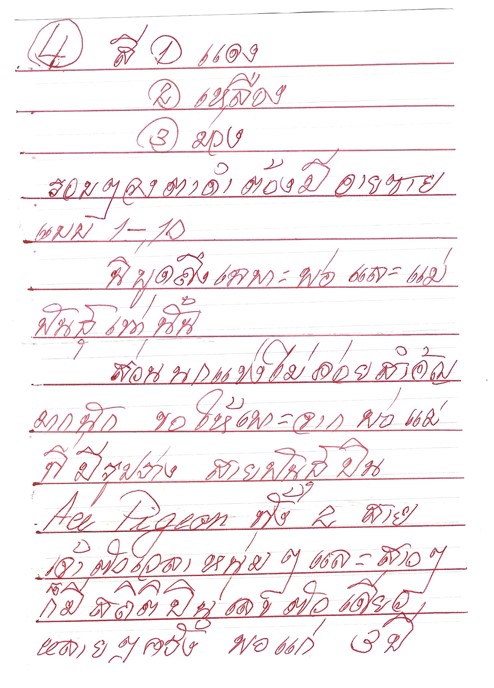 ④ สี ① แดง
② เหลือง
③ ม่วง
รอบๆ วงตาดำ ต้องมี ลายชาย
แบบ 1-10
นี่พูดถึงเฉพาะพ่อ และแม่
พันธุ์เท่านั้น
ส่วนนกแข่งไม่ค่อยสำคัญ
มากนัก ขอให้เพาะจาก พ่อ แม่
ที่ มีรูปร่าง สายพันธุ์ บิน
Ace Pigeon ทั้ง 2 สาย
เจ้าตัวเวลาหนุ่มๆ และสาวๆ
ก็มี สถิติบินเลขตัวเดียว
หลายๆ ครั้ง พอแก่ 3 ปี